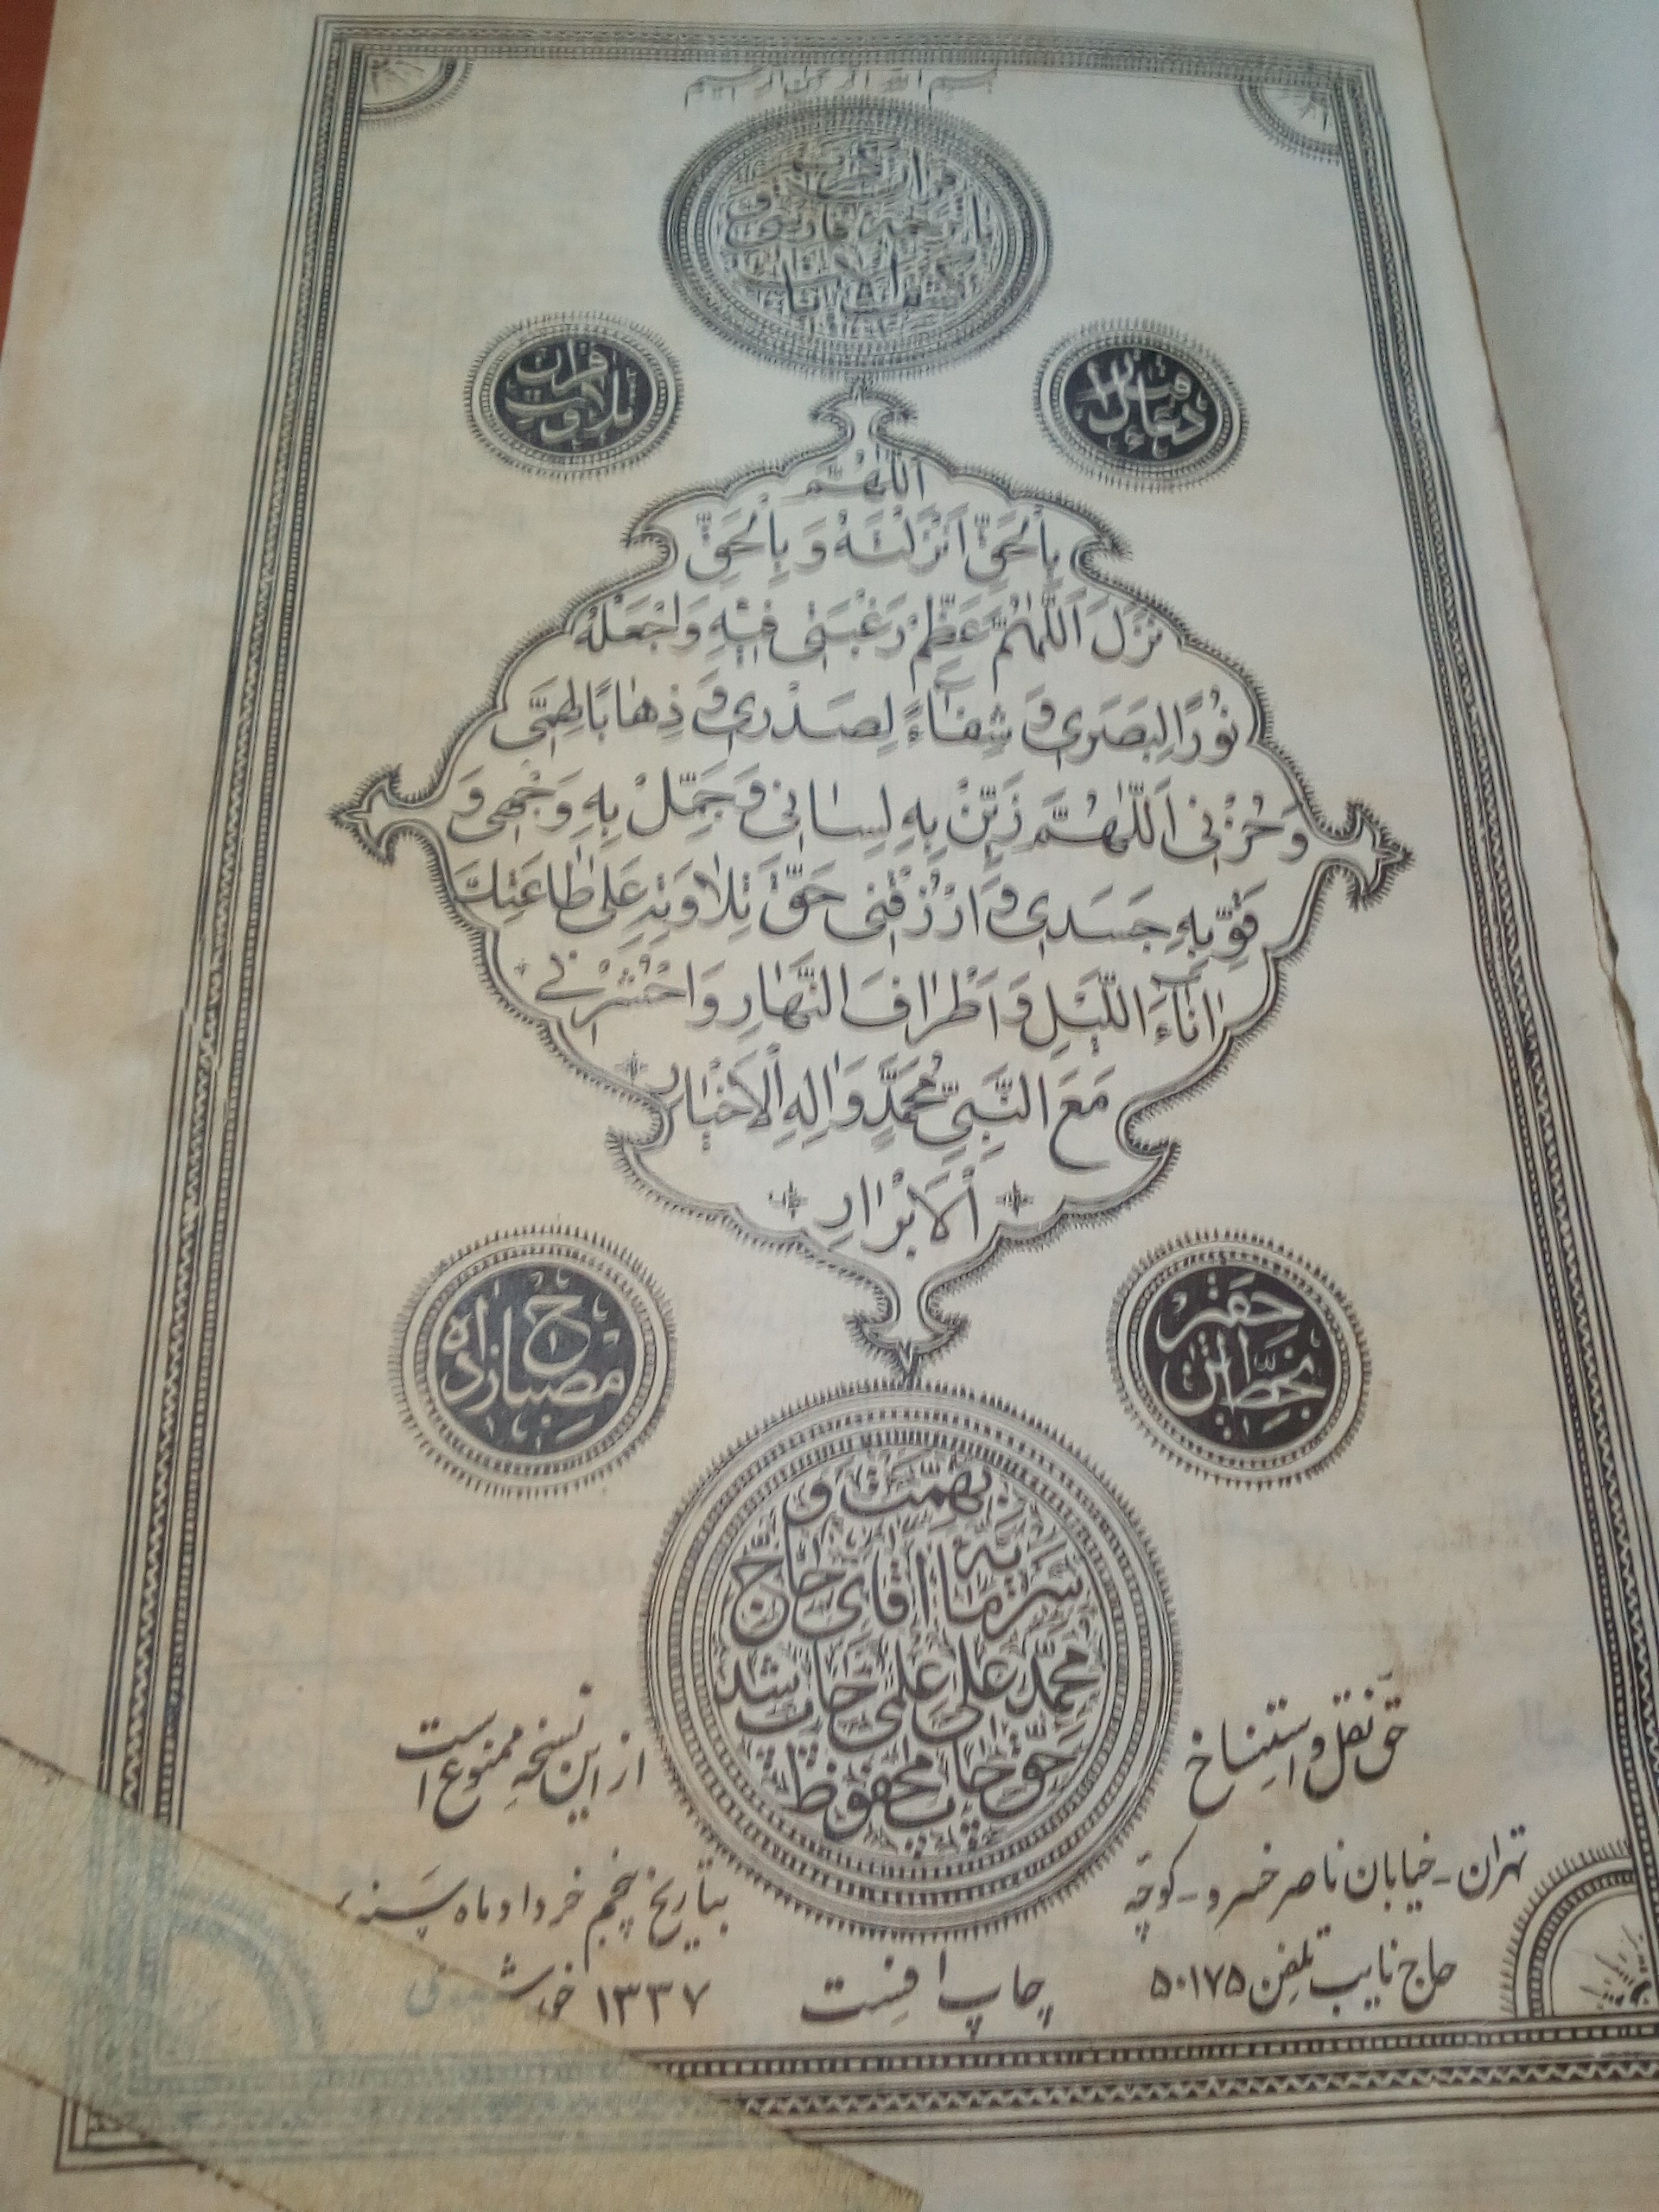 بسم الله الرحمن الرحیم
دعای
تلاوت قرآن
اَللّٰهُمَّ
بِالْحَقِّ اَنْزَلْتَهُ وَ بِالْحَقِّ
نَزَلَ اَللّٰهُمَّ عَظِّمْ رَغْبَتی فیهِ وَاجْعَلْهُ
نُورًا لِبَصَری وَ شِفٰاءً لِصَدْری وَ ذِهٰابًا لِهَمّی
وَ حُزْنی اَللّٰهُمَّ زَیِّنْ بِهِ لِسٰانی وَ جَمِّلْ بِهِ وَجْهی وَ
قَوِّ بِهِ جَسَدی وَ ارْزُقْنی حَقَّ تِلاٰوَتِهِ عَلیٰ طٰاعَتِكَ
اٰنٰاءَ اللَّیْلِ وَ اَطْرٰافَ النَّهٰارِ وَ احْشُرْنی
مَعَ النَّبِیِّ مُحَمَّدٍ وَ اٰلِهِ الْاَخْیٰارِ
الْاَبْرٰارِ
بخط
ح مصباح زاده
بهمت و
سرمایه آقای حاج
محمد علی علمی چاپ شد
حق چاپ محفوظ
حق نقل و استنساخ
از این نسخه ممنوع است
تهران - خیابان ناصر خسرو - کوچه
حاج نایب تلفن ۵۰۱۷۵
چاپ افست
بتاریخ پنجم خرداد ماه سنه
۱۳۳۷ خورشیدی